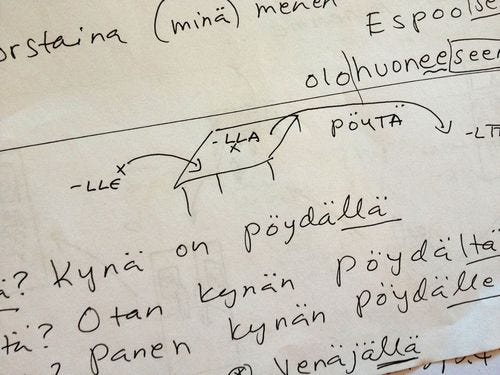 orstaina (minä) menen
Espoolse
olohuoneeseen
-LLA
PÖYTÄ
-LLE
-LT
ä? Kynä on pöydällä
tä? Otan kynän pöydältä
? Panen kynän pöydälle
Venäjällä